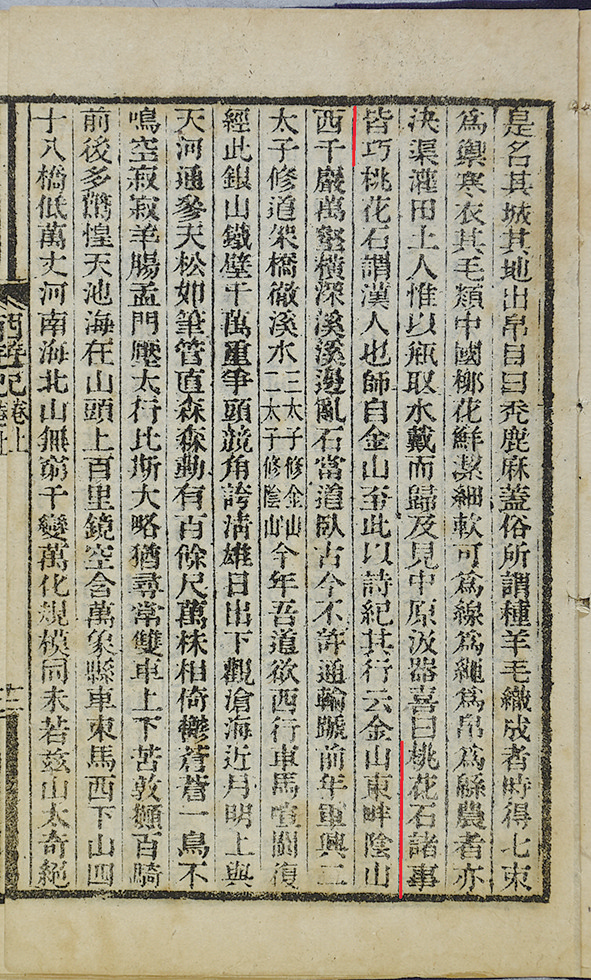 是名其城其地出帛目曰禿鹿麻蓋俗所謂種羊毛織成者時得七束
爲禦寒衣其毛類中國栁花鮮潔細軟可爲線爲繩爲帛爲緜農者亦
決渠灌田土人惟以瓶取水戴而歸及見中原汲器喜曰桃花石諸事
皆巧桃花石謂漢人也師自金山至此以詩紀其行云金山東畔陰山
西千巖萬壑橫深溪溪邊亂石當道臥古今不許通輪蹏前年軍興二
太子修道架橋徹溪水三太子修金山二太子修陰山今年吾道欲西行車馬喧闐復
經此銀山鐵壁千萬重爭頭競角誇清雄日出下觀滄海近月明上與
天河通參天松如筆管直森森動有百餘尺萬株相倚鬱蒼蒼一鳥不
鳴空寂寂羊腸孟門壓太行比斯大略猶尋常雙車上下苦敦顚百騎
前後多驚惶天池海在山頭上百里鏡空含萬象縣車束馬西下山四
十八橋低萬丈河南海北山無窮千變萬化規模同未若茲山太奇絕
西遊記卷上